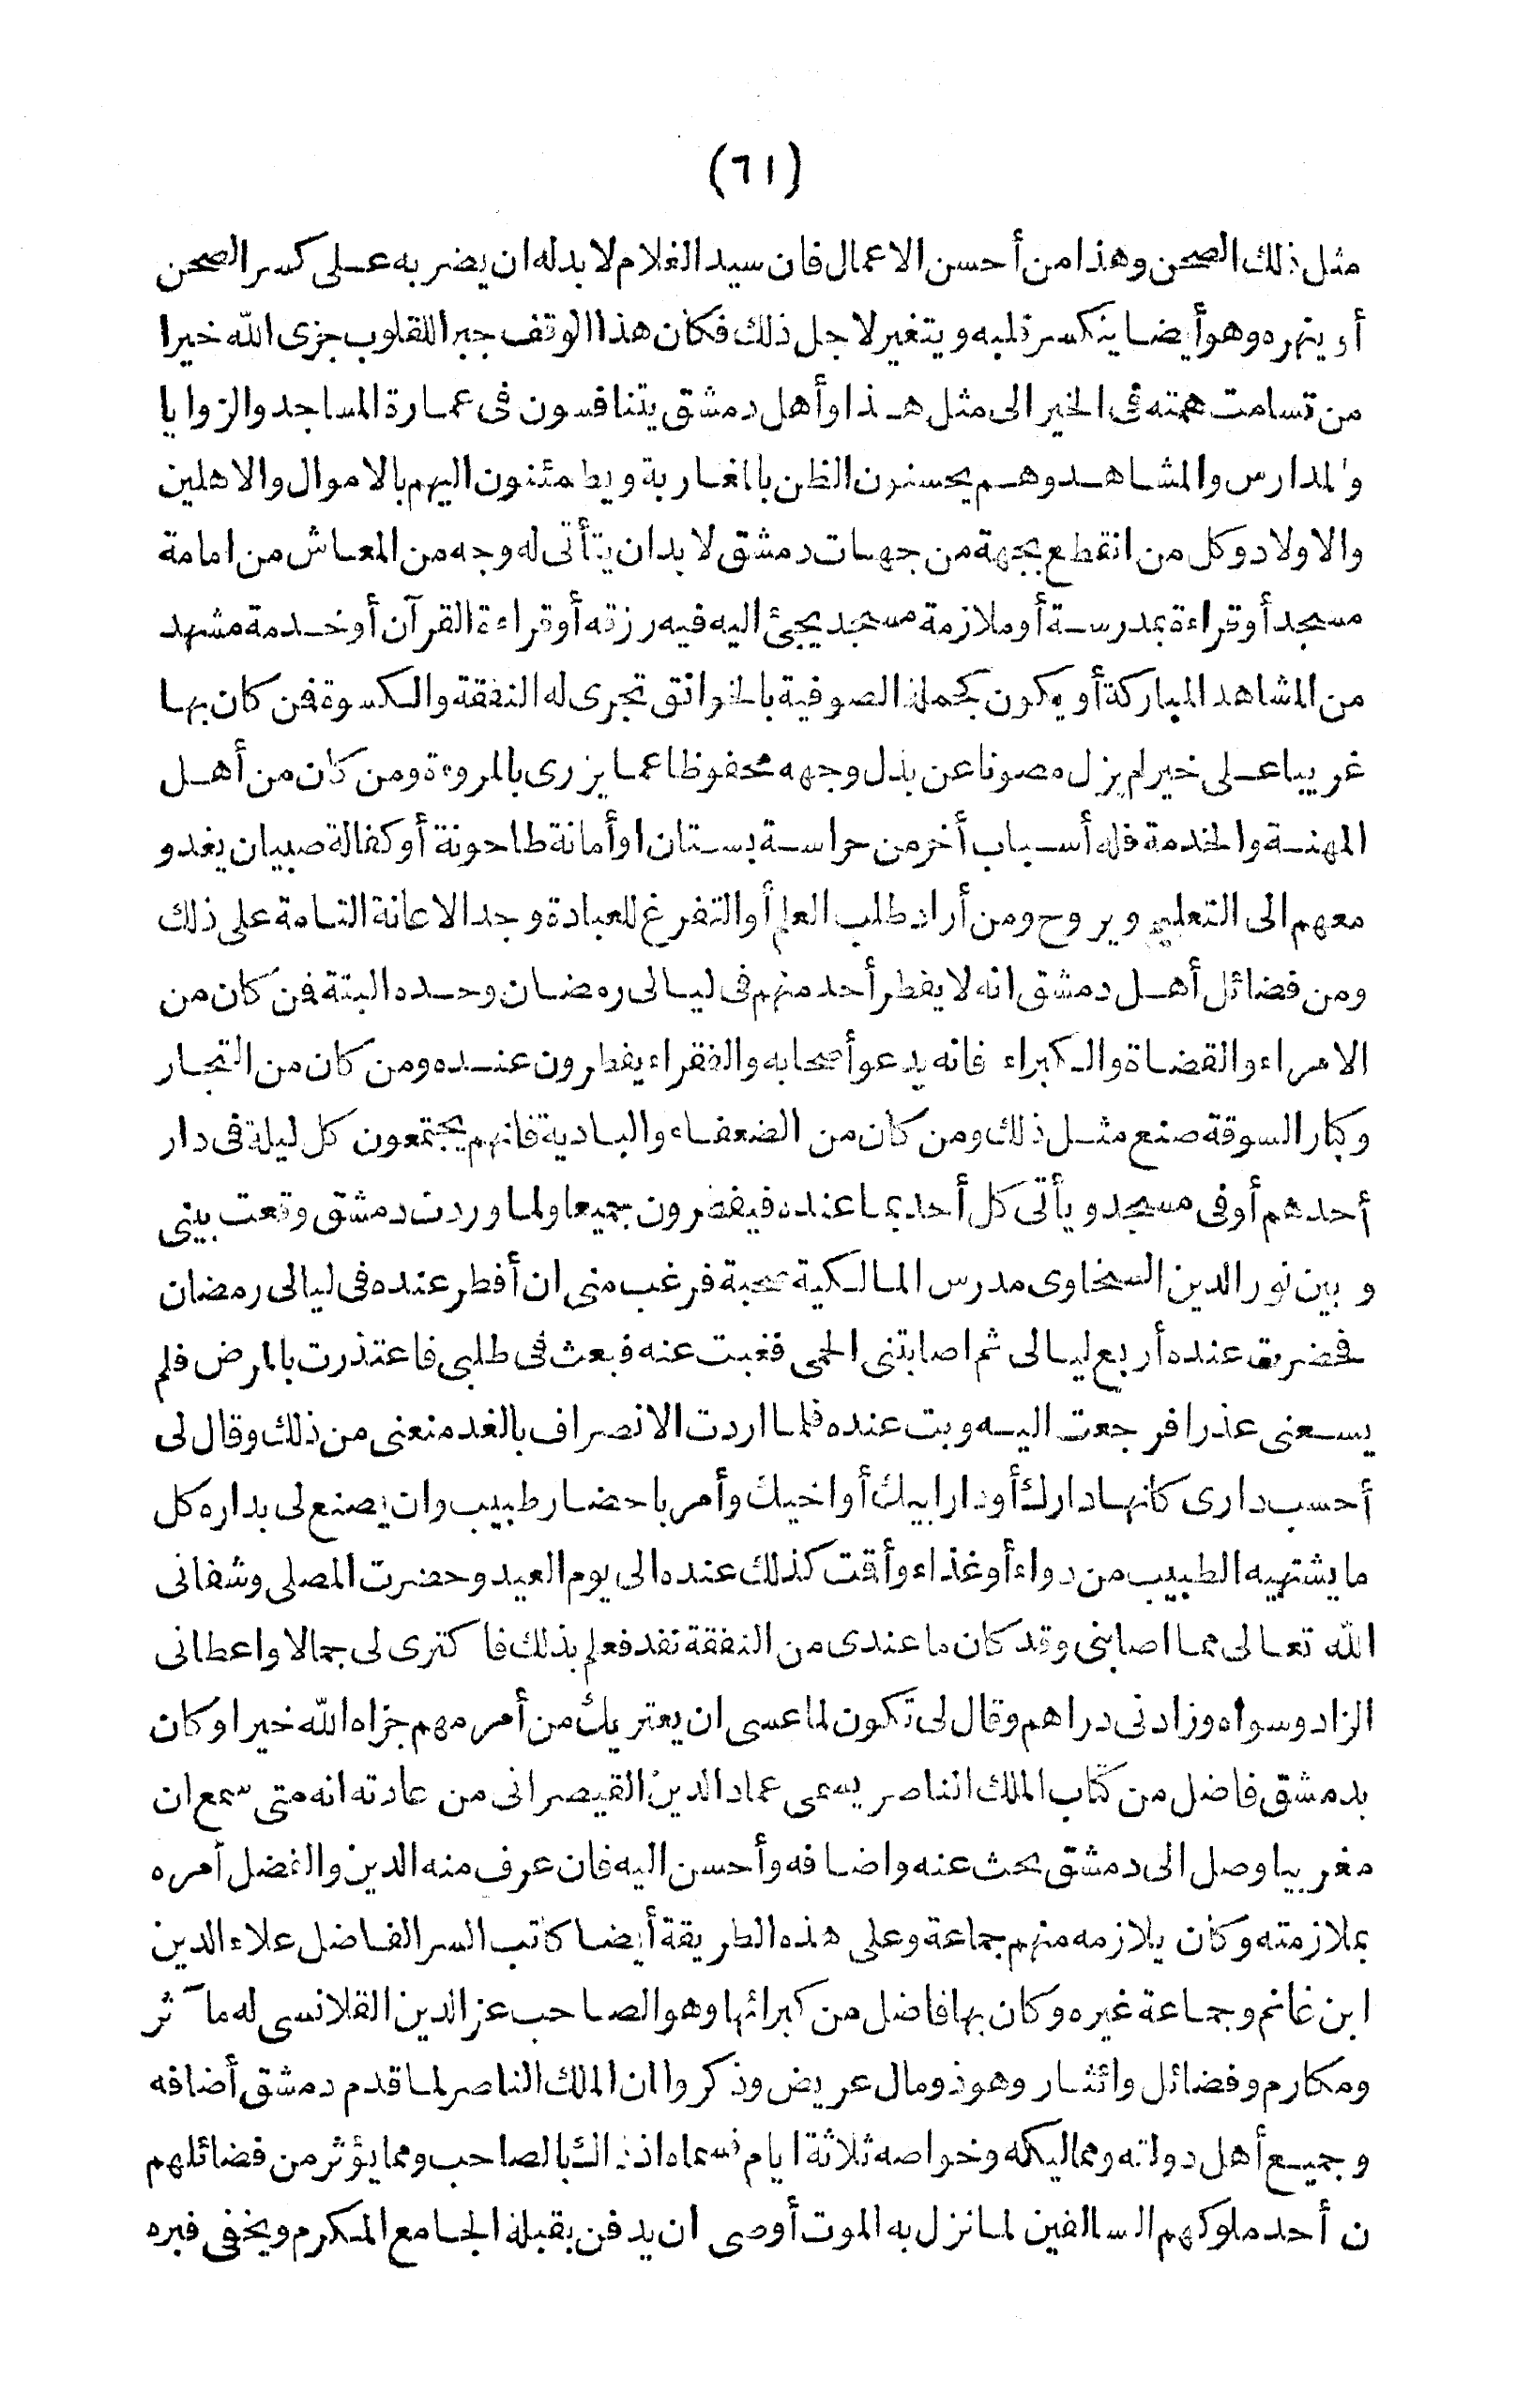 (٦١)
مثل ذلك الصحن وهذا من أحسن الاعمال فان سيد الغلام لا بدله ان يضربه على كسر الصحن
أو ينهره وهو أيضا ينكسر قلبه و يتغير لاجل ذلك فكان هذا الوقف جبرا للقلوب جزى الله خيرا
من تسامت همته فى الخير الى مثل هذا وأهل دمشق يتنافسون فى عمارة المساجد والزوايا
والمدارس والمشاهد وهم يحسنون الظن بالمغاربة ويطمئنون اليهم بالاموال والاهلين
والاولاد وكل من انقطع بجهة من جهات دمشق لا بد ان يتأتى له وجه من المعاش من امامة
مسجد أو قراءة بمدرسة أو ملازمة مسجد يجئ اليه فيه رزقه أو قراءة القرآن أو خدمة مشهد
من المشاهد المباركة أو يكون كجملة الصوفية بالخوانق تجرى له النفقة والكسوة فمن كان بها
غريبا على خير لم يزل مصونا عن بذل وجهه محفوظا عما يزرى بالمروءة ومن كان من أهل
المهنة والخدمة فله أسباب أخر من حراسة بستان او أمانة طاحونة أو كفالة صبيان يغدو
معهم الى التعليم ويروح ومن أراد طلب العلم أو التفرغ للعبادة وجد الاعانة التامة على ذلك
ومن فضائل أهل دمشق انه لا يفطر أحد منهم فى ليالى رمضان وحده البتة فمن كان من
الامراء والقضاة والكبراء فانه يدعو أصحابه والفقراء يفطرون عنده ومن كان من التجار
وكبار السوقة صنع مثل ذلك ومن كان من الضعفاء والبادية فانهم يجتمعون كل ليلة فى دار
أحدهم أو فى مسجد ويأتى كل أحد بما عنده فيفطرون جميعا ولما وردت دمشق وقعت بينى
وبين نور الدين السخاوى مدرس المالكية صحبة فرغب منى ان أفطر عنده فى ليالى رمضان
فحضرت عنده أربع ليالى ثم اصابتنى الحمى فغبت عنه فبعث فى طلبى فاعتذرت بالمرض فلم
يسعنى عذرا فرجعت اليه وبت عنده فلما اردت الانصراف بالغد منعنى من ذلك وقال لى
أحسب دارى كانها دارك أو دار ابيك أو اخيك وأمر باحضار طبيب وان يصنع لى بداره كل
ما يشتهيه الطبيب من دواء أو غذاء وأقت كذلك عنده الى يوم العيد وحضرت المصلى وشفانى
الله تعالى مما اصابنى وقد كان ما عندى من النفقة نفد فعلم بذلك فاكترى لى جمالا واعطانى
الزاد وسواه وزادنى دراهم وقال لى تكون لما عسى ان يعتريك من أمر مهم جزاه الله خيرا وكان
بدمشق فاضل من كتاب الملك الناصر يسمى عماد الدين القيصرانى من عادته انه متى سمع ان
مغربيا وصل الى دمشق بحث عنه واضافه وأحسن اليه فان عرف منه الدين والفضل أمره
بملازمته وكان يلازمه منهم جماعة وعلى هذه الطريقة أيضا كاتب السر الفاضل علاء الدين
ابن غانم وجماعة غيره وكان بها فاضل من كبرائها وهو الصاحب عز الدين القلانسى له مآثر
ومكارم وفضائل وائثار وهو ذو مال عريض وذكروا ان الملك الناصر لما قدم دمشق أضافه
وجميع أهل دولته ومماليكه وخواصه ثلاثة ايام فسماه اذ ذاك بالصاحب ومما يؤثر من فضائلهم
ن أحد ملوكهم السالفين لما نزل به الموت أوصى ان يدفن بقبلة الجامع المكرم ويخفى قبره